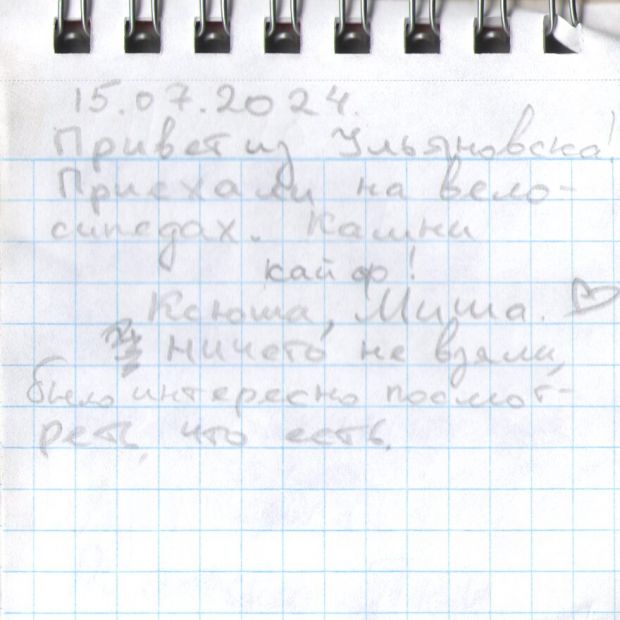 15.07.2024.
Привет из Ульяновска!
Приехали на вело-
сипедах. Камни
кайф!
Ксюша, Миша.
ничего не взяли,
было интересно посмот-
реть, что есть.